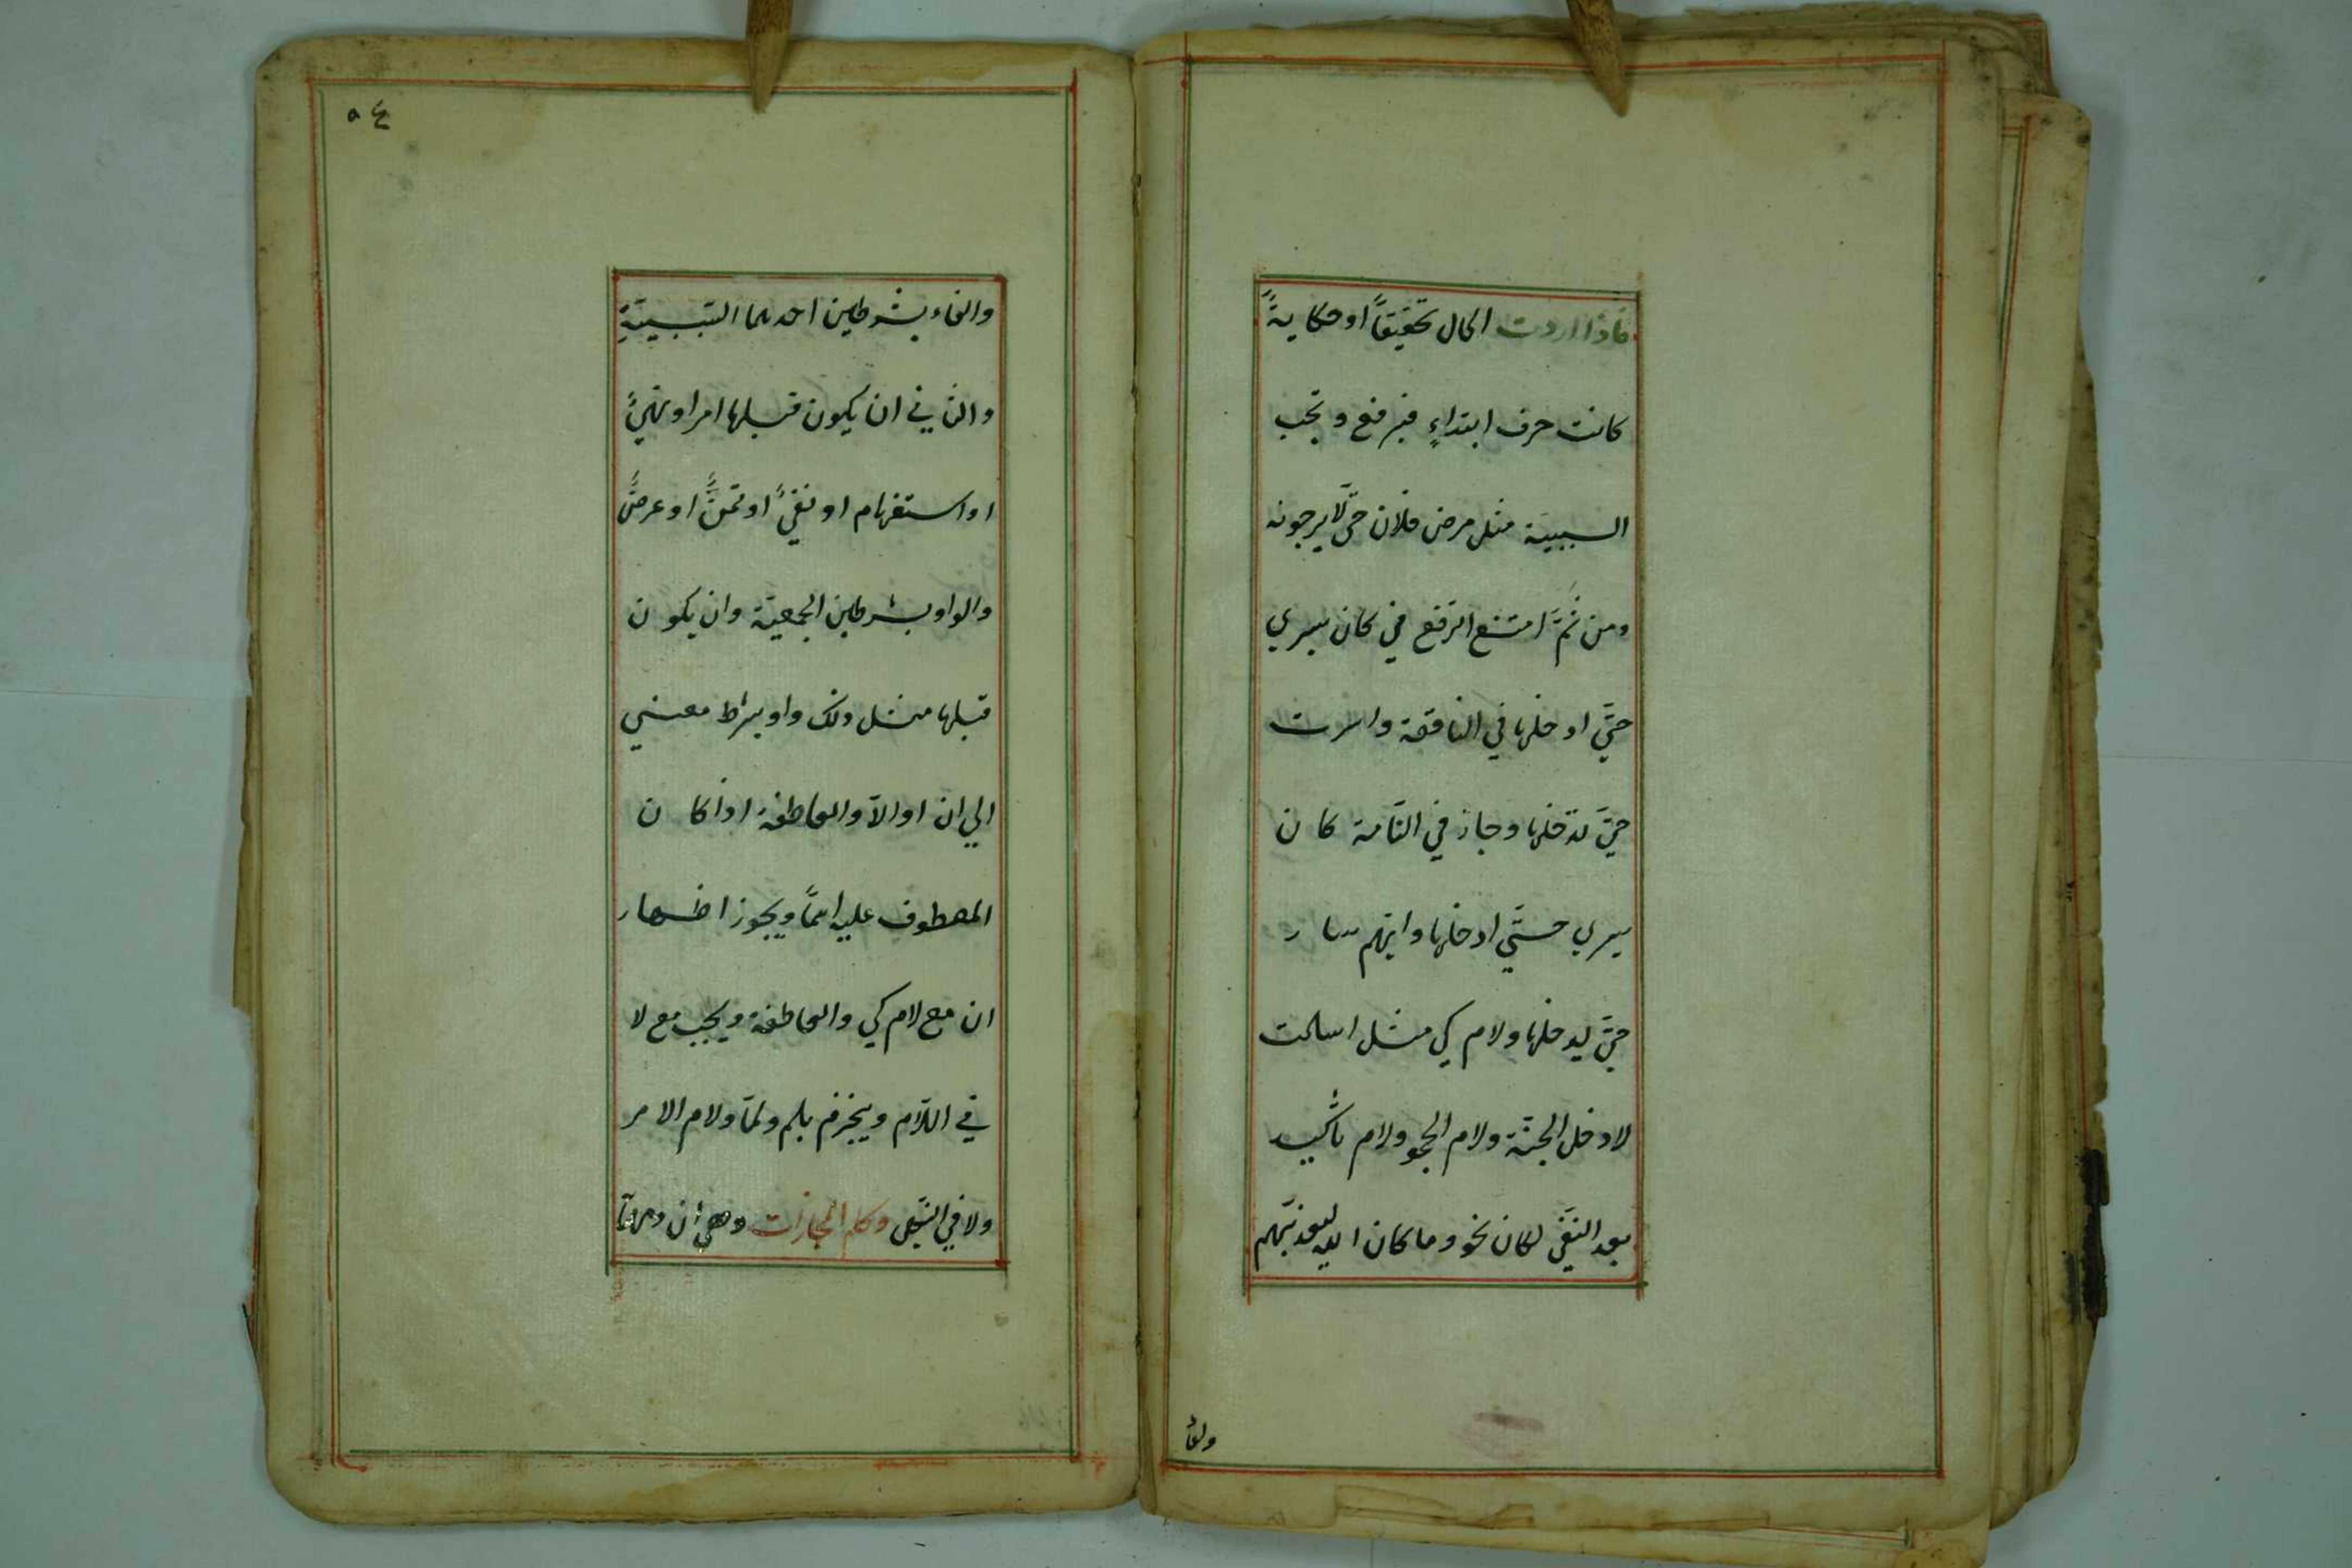 فاذا اردت الحال تحقيقًا او حكايةً
كانت حرف ابتداءٍ فيرفع وتجب
السببية مثل مرض فلان حتّى لا يرجونه
ومن ثَمَّ امتنع الرفع في كان سيري
حتَّي ادخلها في الناقصة واسرت
حتيَّ تدخلها وجاز في التامة كان
سيري حتَّي ادخلها وايّهم سار
حتيَّ يدخلها ولام كي مثل اسلمت
لادخل الجنّة ولام الجحو ولام تأكيد
بعد النفي لكان نحو وما كان الله ليعذبّهم
والفا
٤٥
والفاء بشرطين احدهما السّببيّةِ
والثاني ان يكون قبلها امر او نهيً
او استفهام او نفيً او تمنًّ او عرضًّ
والواو بشرطين الجمعيّة وان يكون
قبلها مثل ذلك واو بشرط معني
الي ان او الاّ والعاطفة اذا كان
المعطوف عليه اسمًا ويجوز اظهار
ان مع لام كي والعاطفة ويجب مع لا
في اللاّم وينجزم بلم ولمّا ولام الامر
ولا في النهي وكلم المجازات وهي ان ومهما